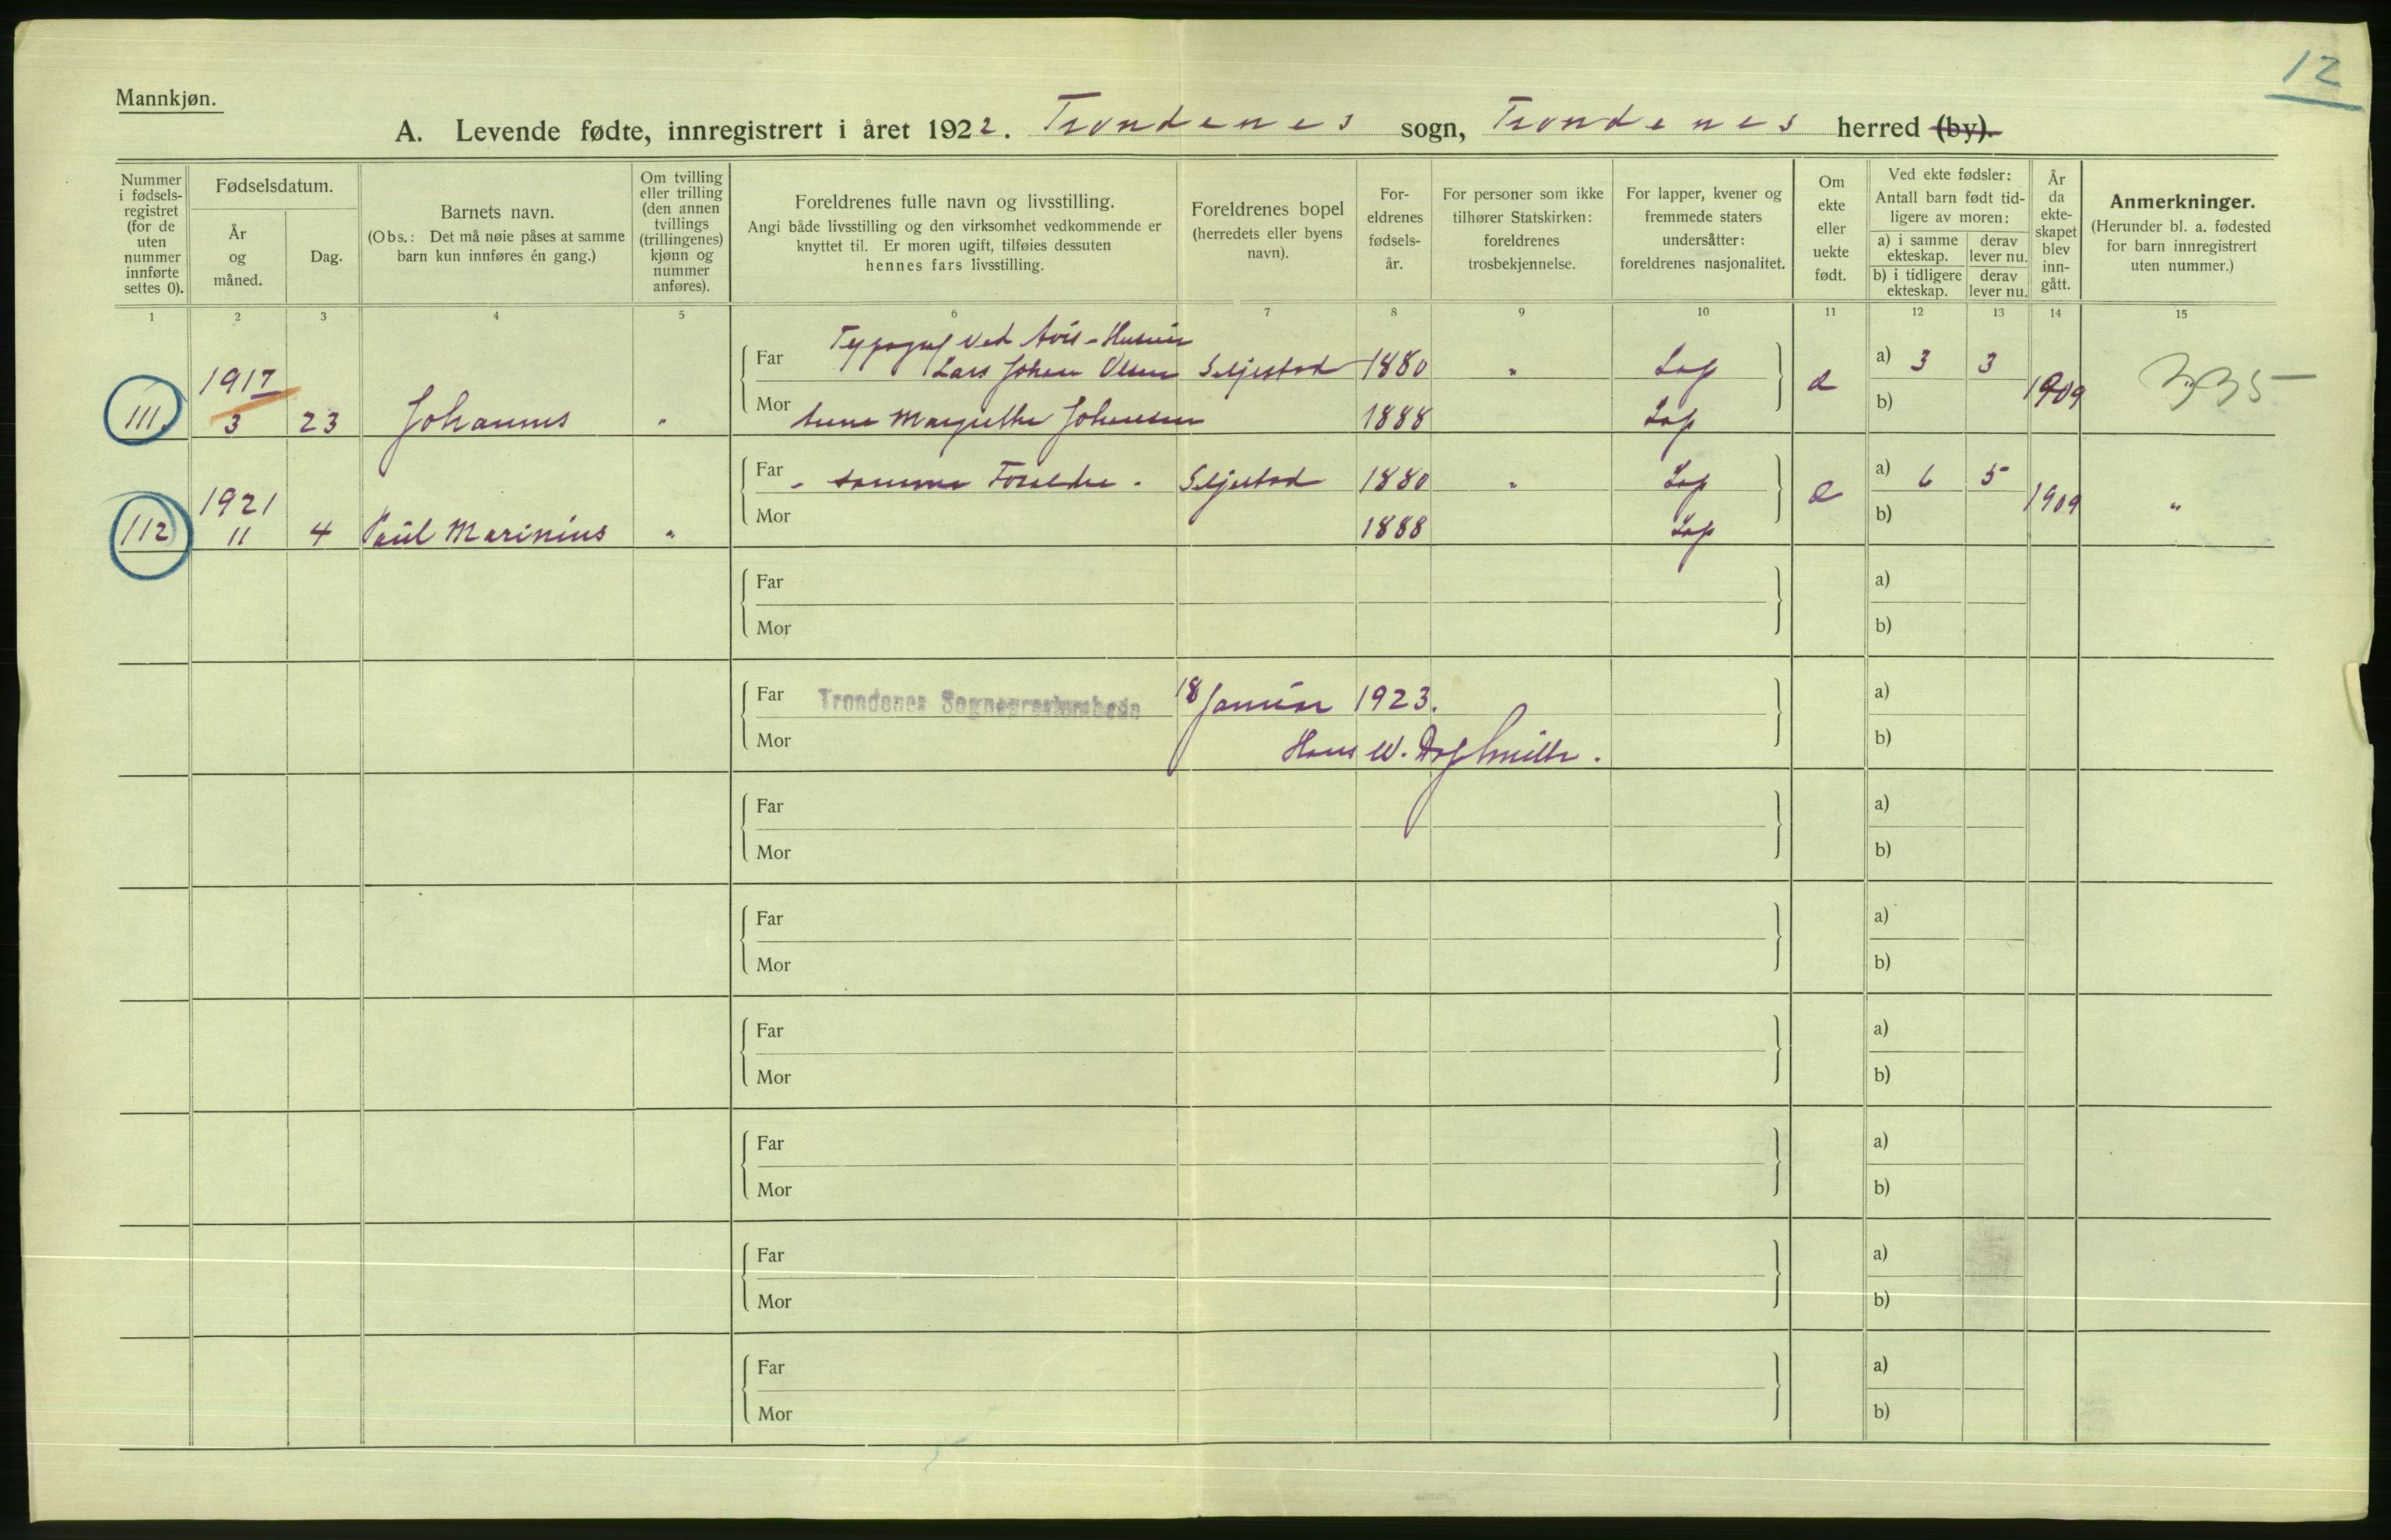 12
Mannkjøn.
A. Levende fødte, innregistrert i året 1922. Trondenes sogn, Trondenes herred (by).
Nummer i fødsels-registret (for de uten nummer innførte settes 0).
Fødselsdatum.
År og måned.
Dag.
Barnets navn.
(Obs.: Det må nøie påses at samme barn kun innføres én gang.)
Om tvilling eller trilling (den annen tvillings (trillingenes) kjønn og nummer anføres).
Foreldrenes fulle navn og livsstilling.
Angi både livsstilling og den virksomhet vedkommende er knyttet til. Er moren ugift, tilføies dessuten hennes fars livsstilling.
Foreldrenes bopel (herredets eller byens navn).
For-eldrenes fødsels-år.
For personer som ikke tilhører Statskirken: foreldrenes trosbekjennelse.
For lapper, kvener og fremmede staters undersåtter: foreldrenes nasjonalitet.
Om ekte eller uekte født.
Ved ekte fødsler:
Antall barn født tid-ligere av moren:
a) i samme ekteskap. derav lever nu.
b) i tidligere ekteskap. derav lever nu.
År da ekte-skapet blev inn-gått.
Anmerkninger.
(Herunder bl. a. fødested for barn innregistrert uten nummer.)
1 2 3 4 5 6 7 8 9 10 11 12 13 14 15
Typograf ved Avis-
111. 1917 3 23 Johannes " Far Lars Johan Olsen Seljestad 1880 " Lap e a) 3 3 1909 335
Mor Anna Margrethe Johansen 1888 Lap b)
112 1921 11 4 Paul Marinius " Far - samme Foreldre - Seljestad 1880 " Lap e a) 6 5 1909 "
Mor 1888 Lap b)
Far a)
Mor b)
Far Trondenes Sogneprestembede 18 Januar 1923. a)
Mor Hans W. b)
Far a)
Mor b)
Far a)
Mor b)
Far a)
Mor b)
Far a)
Mor b)
Far a)
Mor b)
Far a)
Mor b)